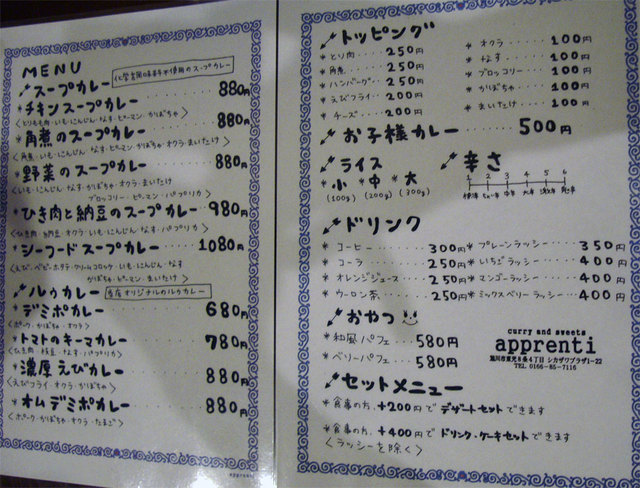 MENU
スープカレー
化学調味料不使用のスープカレー
*チキンスープカレー 880円
<とりもも肉・いも・にんじん・なす・ピーマン・かぼちゃ>
*角煮のスープカレー 880円
<角煮・いも・にんじん・なす・ピーマン・かぼちゃ・オクラ・まいたけ>
*野菜のスープカレー 880円
<いも・にんじん・なす・かぼちゃ・オクラ・まいたけ
ブロッコリー・ピーマン・パプリカ>
*ひき肉と納豆のスープカレー 980円
<ひき肉・納豆・オクラ・いも・にんじん・なす・パプリカ>
*シーフードスープカレー 1080円
<えび・ベビーホタテ・クリームコロッケ・いも・にんじん・なす
かぼちゃ・ピーマン・まいたけ>
ルゥカレー
当店オリジナルのルゥカレー
*デミポカレー 680円
<ポーク・かぼちゃ・オクラ>
*トマトのキーマカレー 780円
<ひき肉・枝豆・なす・パプリカ>
*濃厚えびカレー 880円
<えびフライ・オクラ・かぼちゃ>
*オムデミポカレー 880円
<ポーク・かぼちゃ・オクラ・たまご>
トッピング
*とり肉 250円
*角煮 250円
*ハンバーグ 250円
*えびフライ 200円
*チーズ 200円
*オクラ 100円
*なす 100円
*ブロッコリー 100円
*かぼちゃ 100円
*まいたけ 100円
お子様カレー 500円
ライス
*小 *中 *大
(100g) (200g) (300g)
辛さ
1 2 3 4 5 6
標準 中辛 大辛
ドリンク
*コーヒー 300円
*コーラ 250円
*オレンジジュース 250円
*ウーロン茶 250円
*プレーンラッシー 350円
*いちごラッシー 400円
*マンゴーラッシー 400円
*ミックスベリーラッシー 400円
おやつ
*和風パフェ 580円
*ベリーパフェ 580円
curry and sweets
apprenti
旭川市東光8条4丁目 シカザワプラザ1-22
TEL. 0166-85-7116
セットメニュー
*食事の方、+200円でデザートセットできます
*食事の方、+400円でドリンク・ケーキセットできます
<ラッシーを除く>